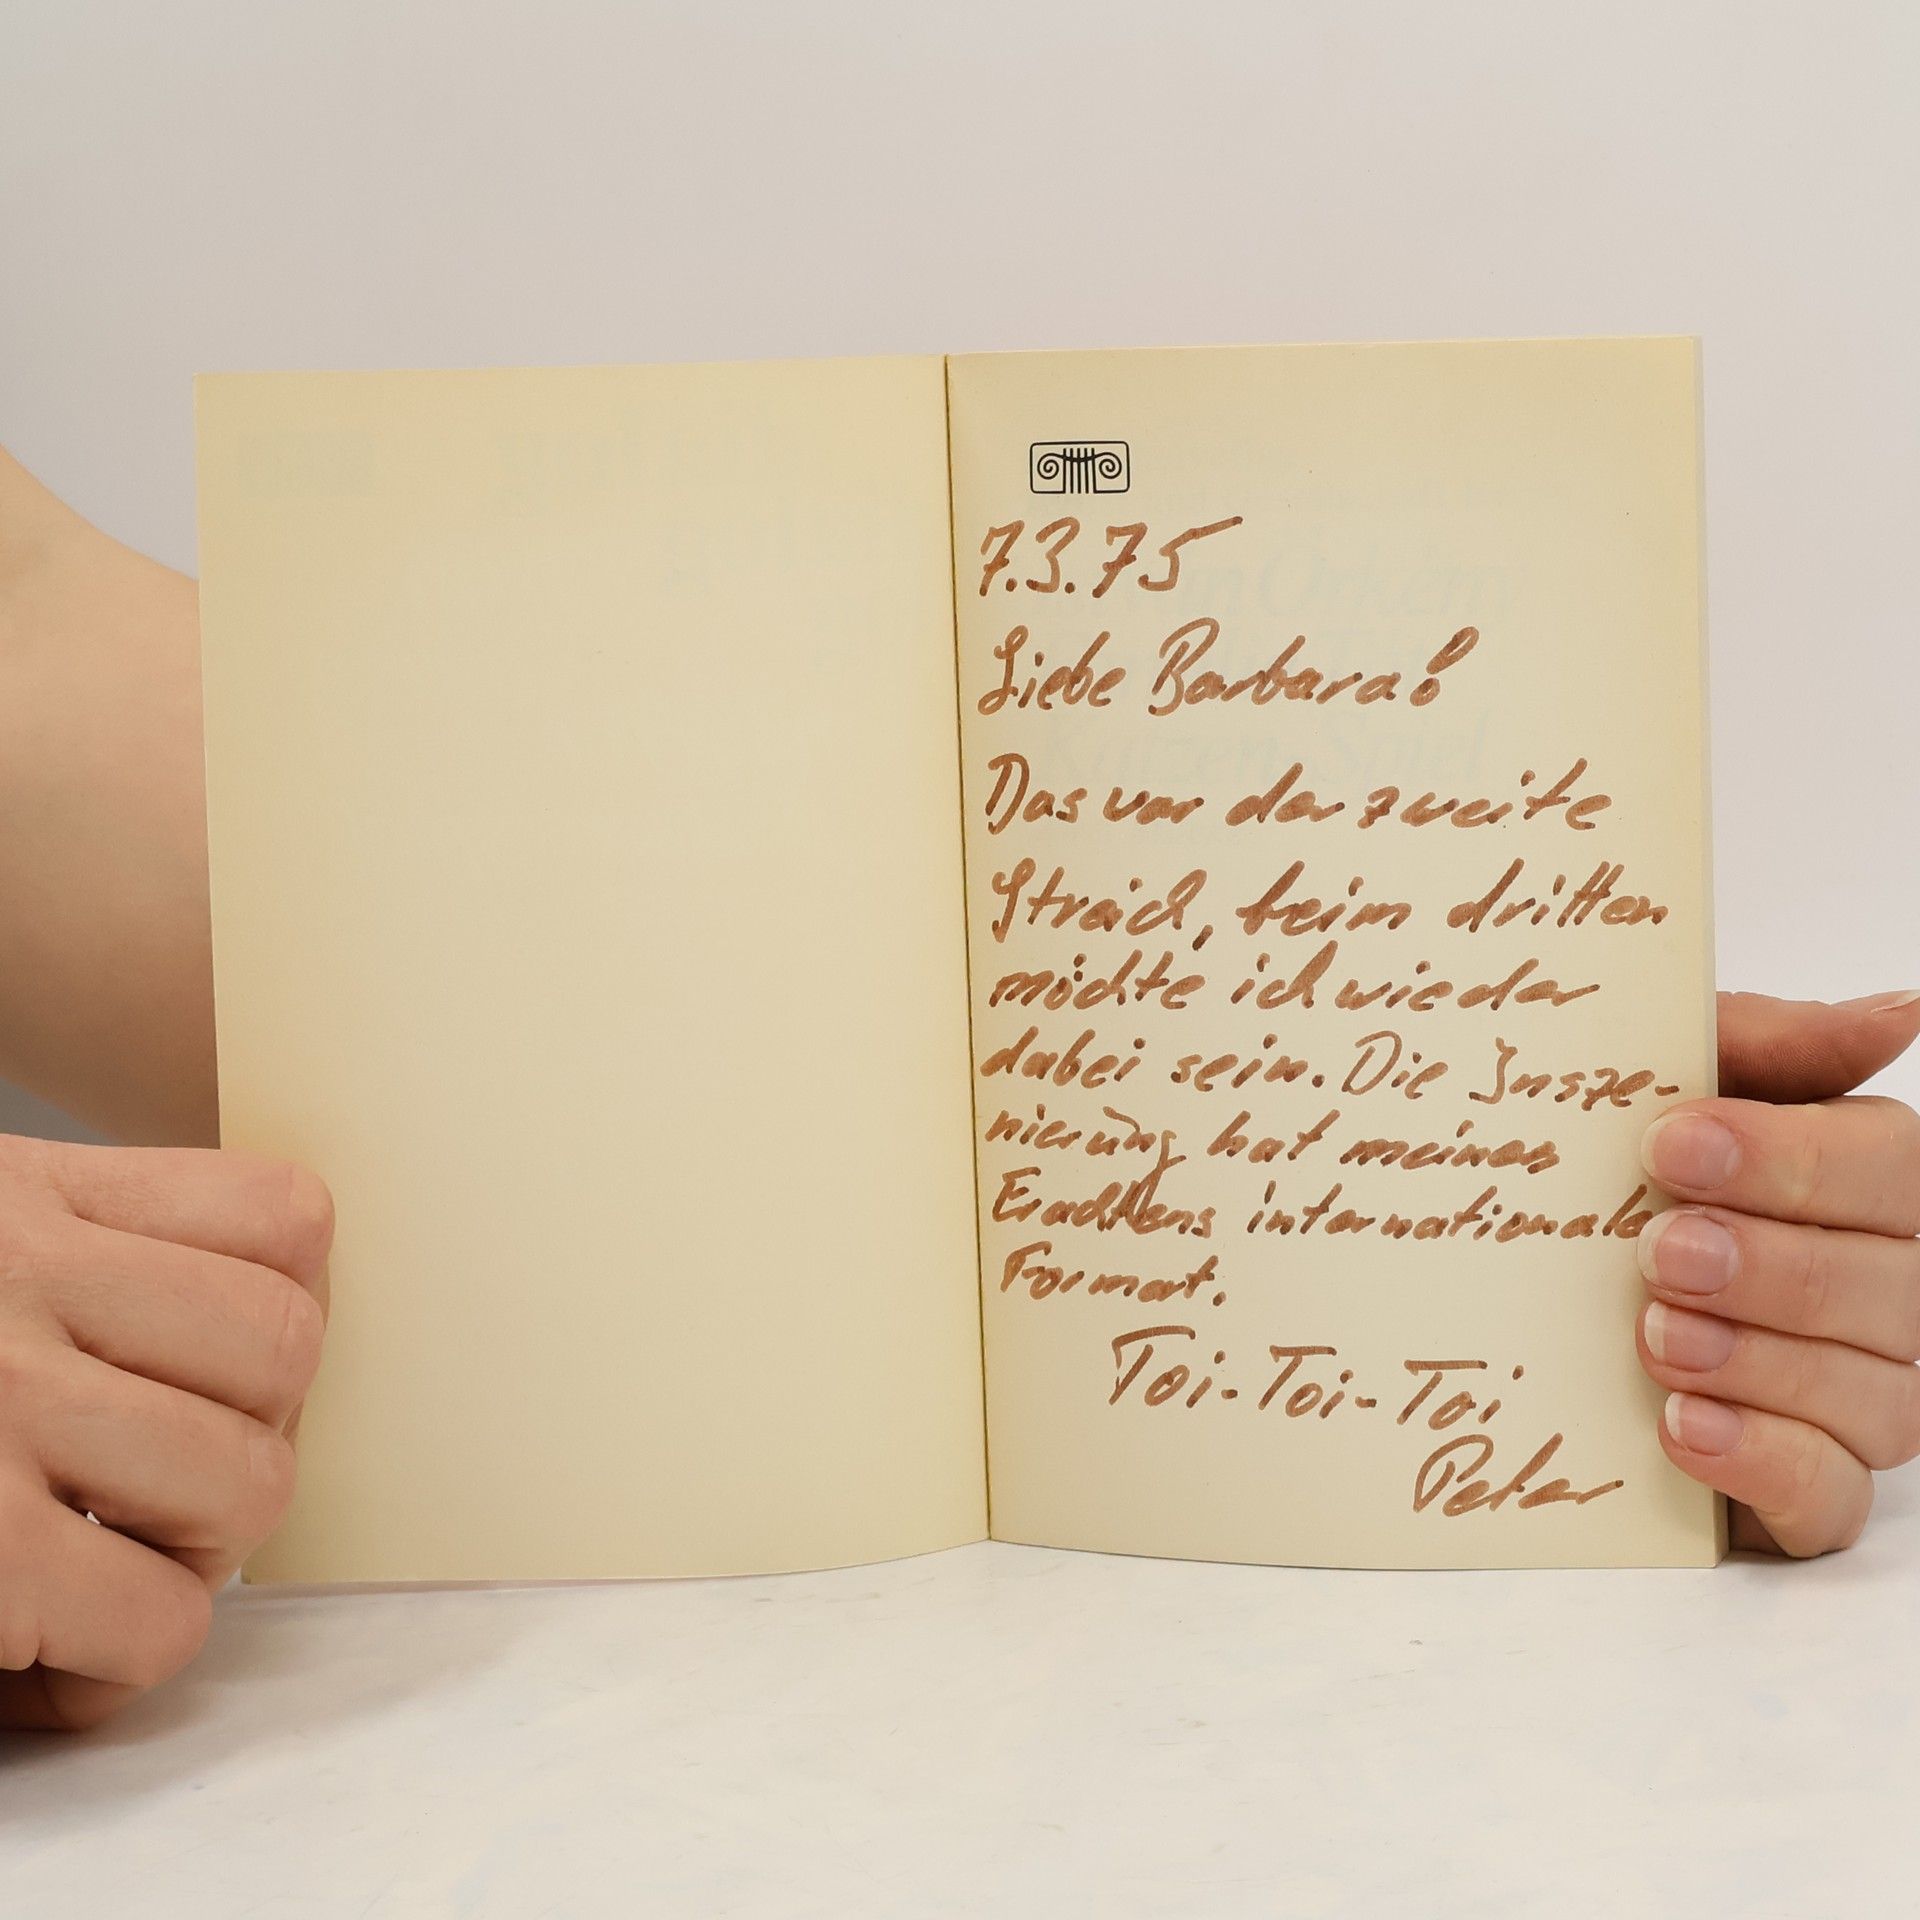 7.3.75
Liebe Barbara!
Das war der zweite
Streich, beim dritten
möchte ich wieder
dabei sein. Die Insze-
nierung hat meines
Erachtens internationale
Format.
Toi-Toi-Toi
Peter